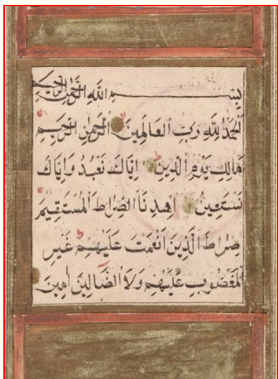 بِسْمِ اللهِ الرَّحْمٰنِ الرَّحِيمِ
اَلْحَمْدُ لِلّٰهِ رَبِّ الْعَالَمِينَ الرَّحْمٰنِ الرَّحِيمِ
مَالِكِ يَوْمِ الدِّينِ اِيَّاكَ نَعْبُدُ وَاِيَّاكَ
نَسْتَعِينُ اِهْدِنَا الصِّرَاطَ الْمُسْتَقِيمَ
صِرَاطَ الَّذِينَ اَنْعَمْتَ عَلَيْهِمْ غَيْرِ
الْمَغْضُوبِ عَلَيْهِمْ وَلَا الضَّالِّينَ اٰمِينَ